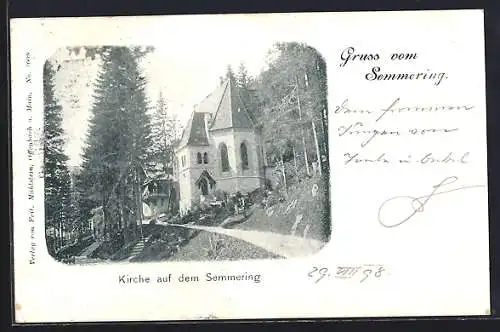 Gruss vom
Semmering.
Dem frommen
von
Tante u. Onkel
Kirche auf dem Semmering
29. VIII 98
Verlag von Feit. Mühlstein, Offenbach a. Main. No.